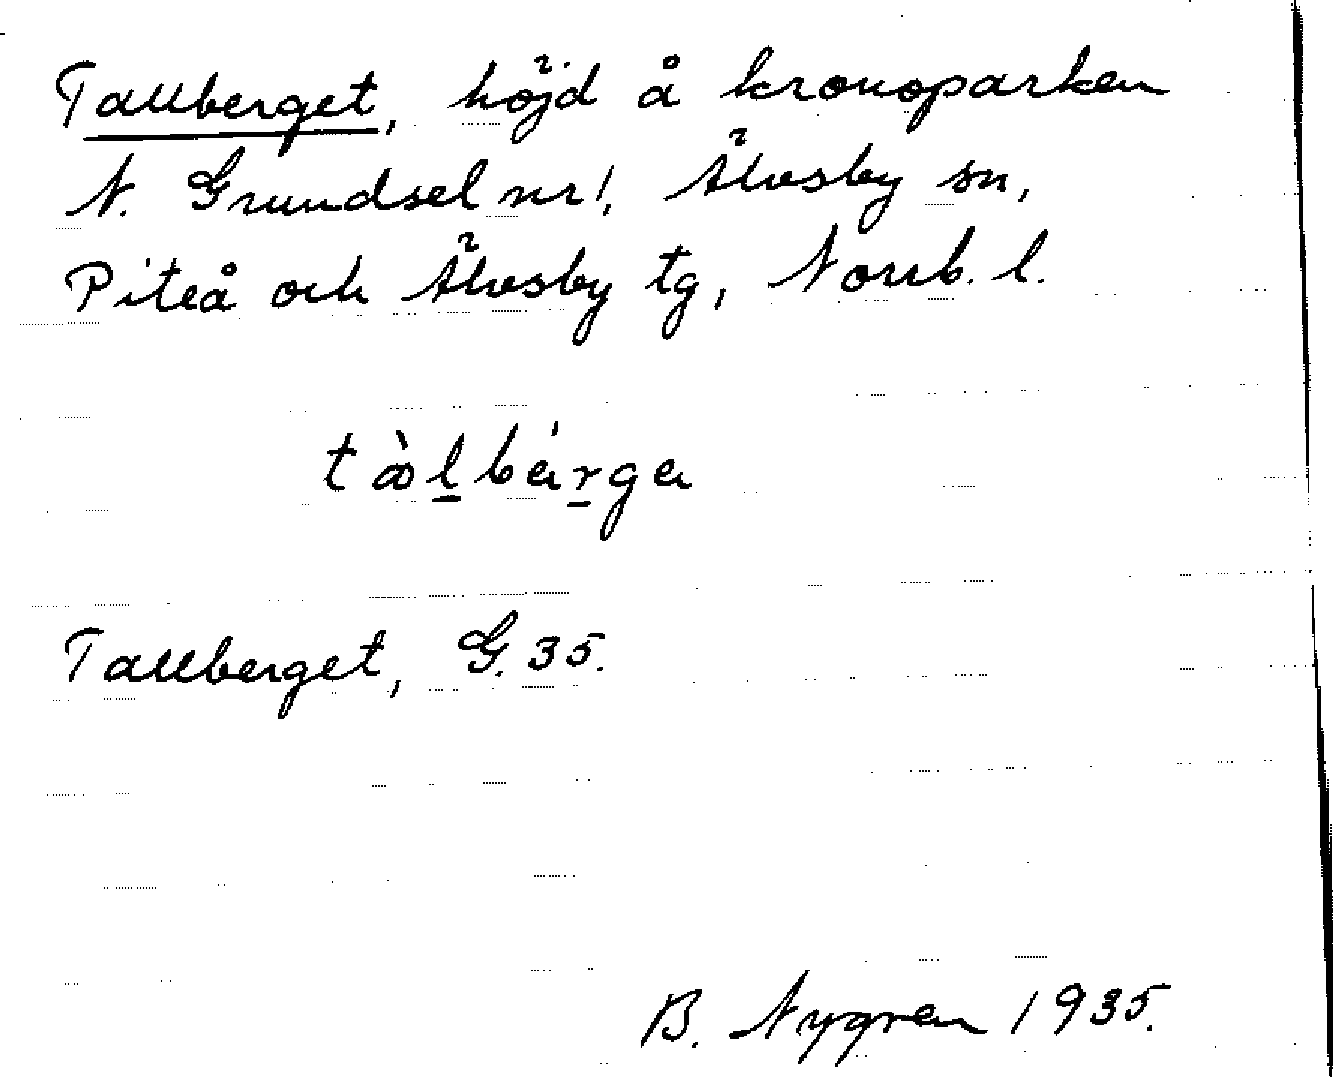 Tallberget, höjd å kronoparken
N. Grundsel nr 1, Älvsby sn,
Piteå och Älvsby tg, Norrb. l.
tàl̠bá̠rga
Tallberget, G. 35.
B. Nygren 1935.